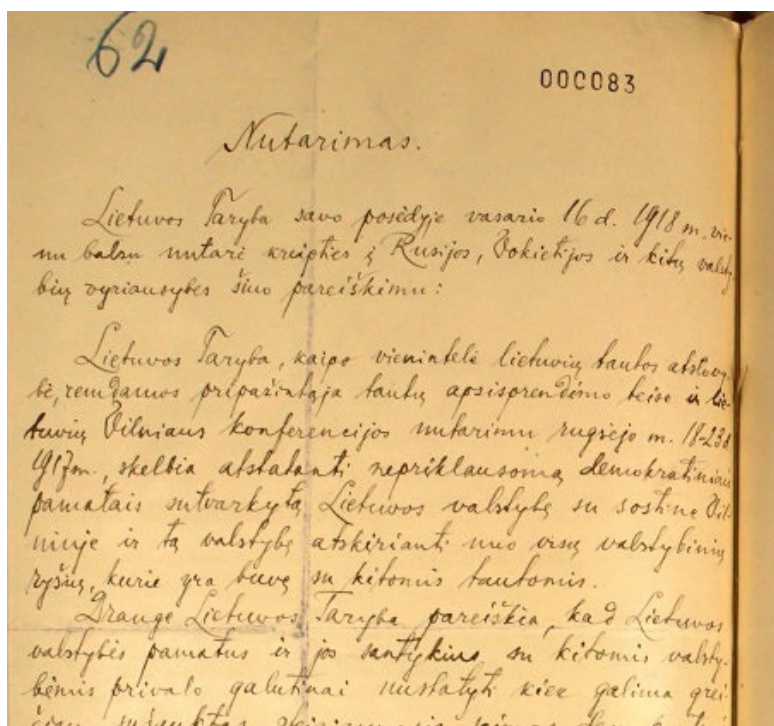 62
000083
Nutarimas.
Lietuvos Taryba savo posėdyje vasario 16 d. 1918 m. vie-
nu balsu nutarė kreipties į Rusijos, Vokietijos ir kitų valsty-
bių vyriausybes šiuo pareiškimu:
Lietuvos Taryba, kaipo vienintelė lietuvių tautos atstovy-
bė, remdamos pripažintąja tautų apsisprendimo teise ir lie-
tuvių Vilniaus konferencijos nutarimu rugsėjo m. 18-23 d.
1917 m., skelbia atstatanti nepriklausomą demokratiniais
pamatais sutvarkytą Lietuvos valstybę su sostine Vil-
niuje ir tą valstybę atskirianti nuo visų valstybinių
ryšių, kurie yra buvę su kitomis tautomis.
Drauge Lietuvos Taryba pareiškia, kad Lietuvos
valstybės pamatus ir jos santykius su kitomis valsty-
bėmis privalo galutinai nustatyti kiek galima grei-